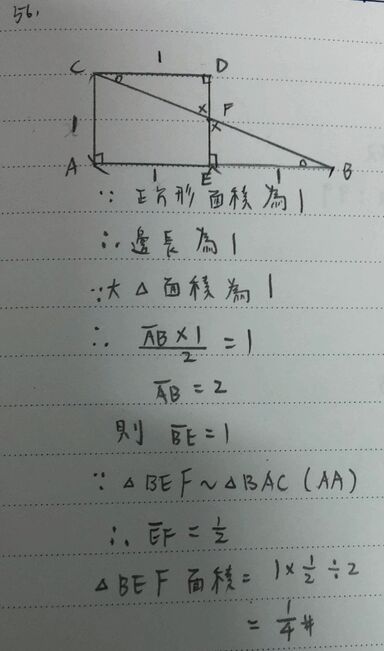 56.
1
C D
F
1
A 1 E 1 B
∵ 正方形面積為1
∴ 邊長為1
∵ 大△面積為1
∴ AB×1/2 = 1
AB = 2
則 BE = 1
∵ △BEF ~ △BAC (AA)
∴ EF = 1/2
△BEF 面積 = 1 × 1/2 ÷ 2
= 1/4 #